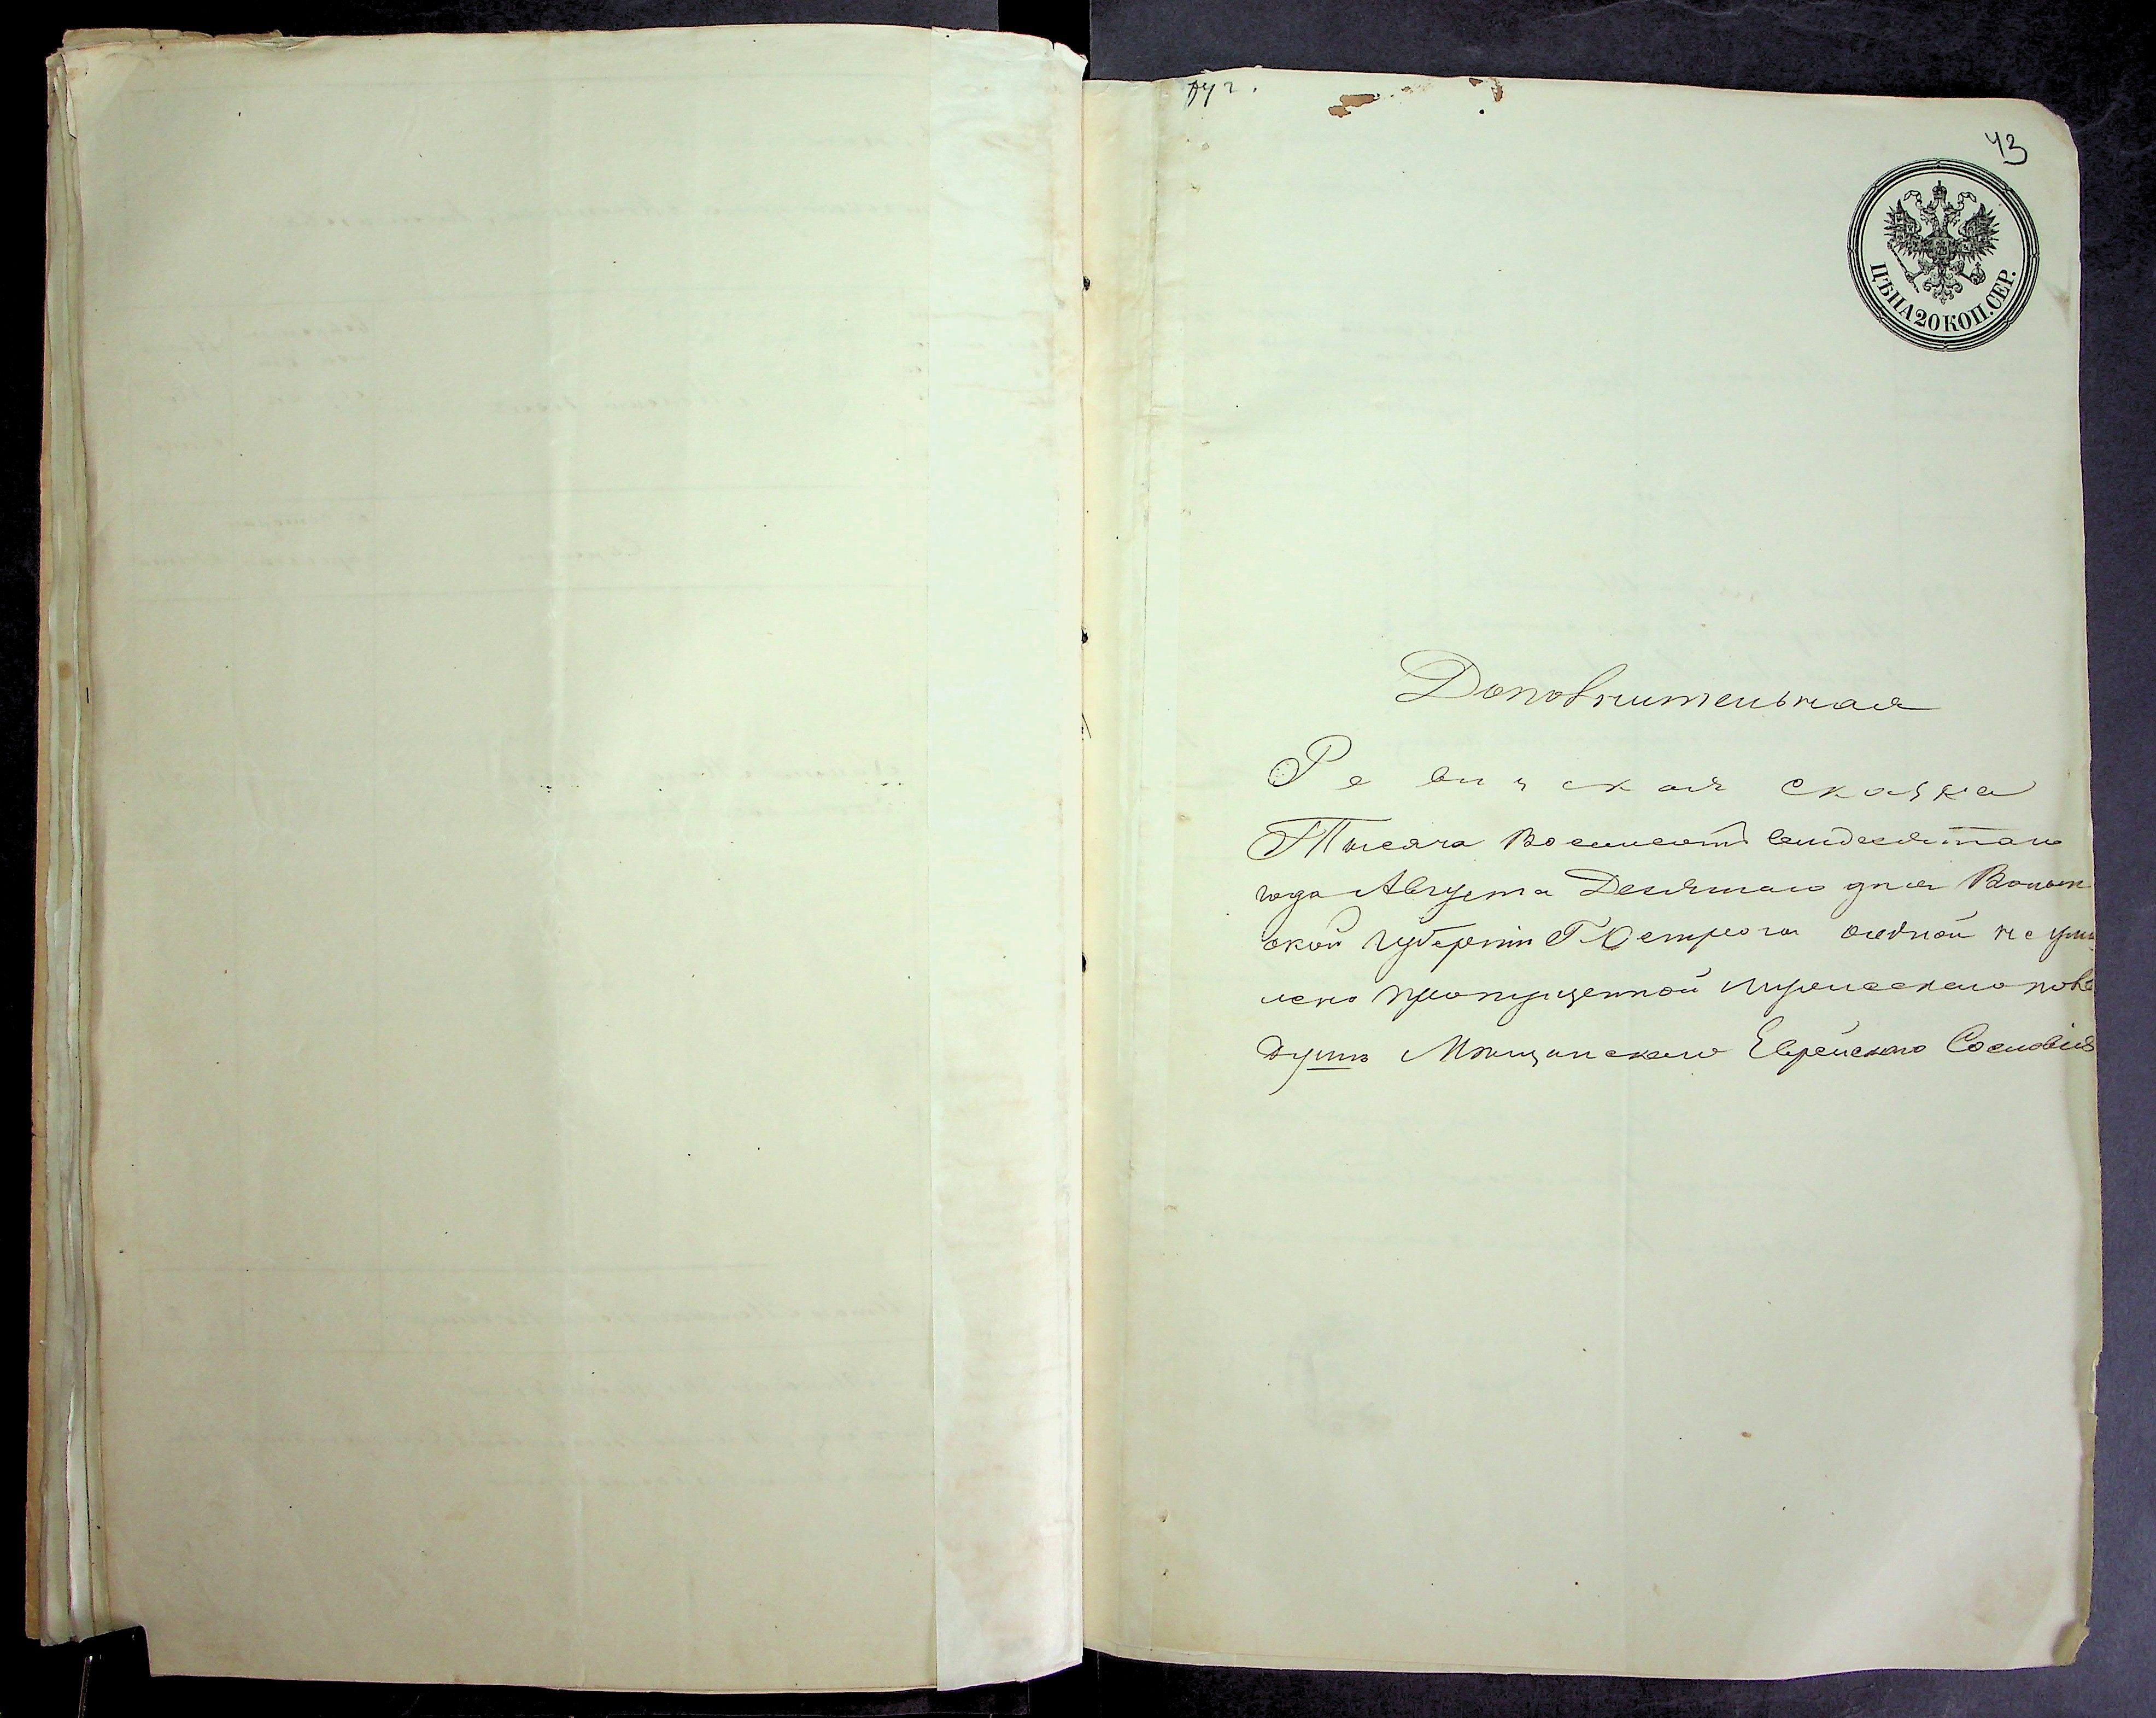 43
ЦѢНА 20 КОП. СЕР.
Дополнительная
Ревизская сказка
Тысяча восемьсотъ семдесятаго
года Августа Десятаго дня Волын
ской Губерніи Г. Острога одной не умы
шлено пропущенной мужескаго пола
души Мѣщанскаго Еврейскаго Сословія